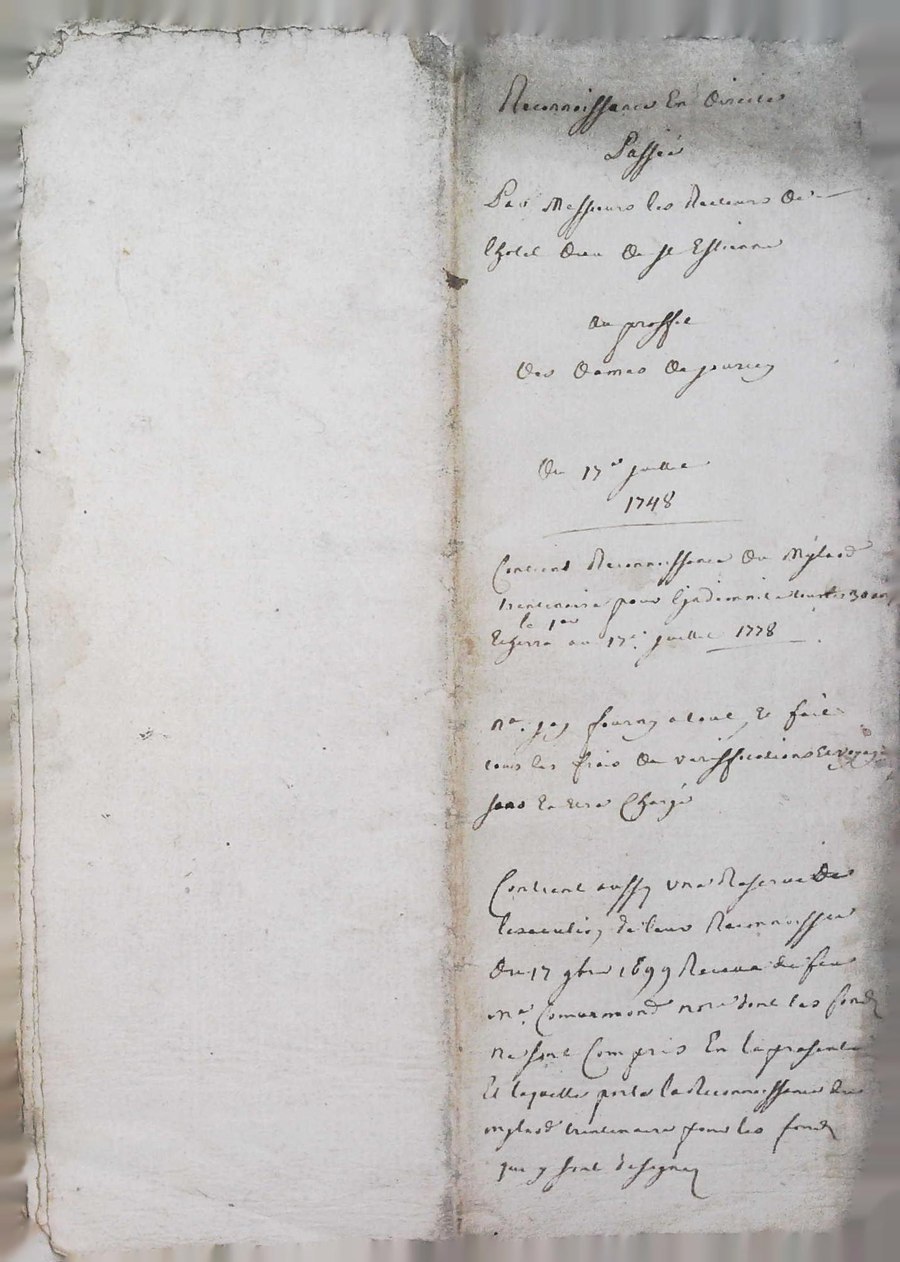 Reconnoissance En Directe
Passée
Par Messieurs les Recteurs De
lhotel dieu de st Estienne
au proffit
des dames de jourcey
Du 17e juillet
1748
Contient Reconnoissance du Mylaod
trentenaire pour lindemnité toutes 30 ans
le 1er
Echerra au 17e juillet 1778
na. jay fourny a tout, Et fait
tous les frais de veriffications Et voyage
sans En Estre Chargé
Contient aussy une Reserve de
lexecution de leur Reconnoissance
Du 17 9bre 1699 Receue de feu
me. Comarmond nore dont les fonds
ne sont Compris En la presente
Et laquelle porte la Reconnoissance du
mylaod trentenaire pour les fonds
qui y sont designez